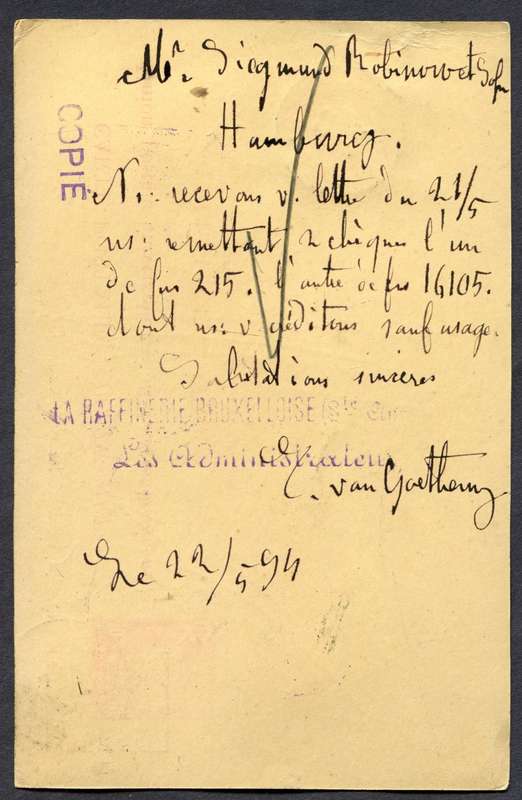 Mr. Siegmund Robinow et Sohn
Hambourg.
COPIÉ
Ns: recevons v. lettre du 21/5
ns: remettant 2 chèques l'un
de frs 215. l'autre de frs 16105.
dont ns: v créditons sauf usage.
Salutations sincères
LA RAFFINERIE BRUXELLOISE (Sté
Les Administrateurs
van Goethem
Le 22/5 94